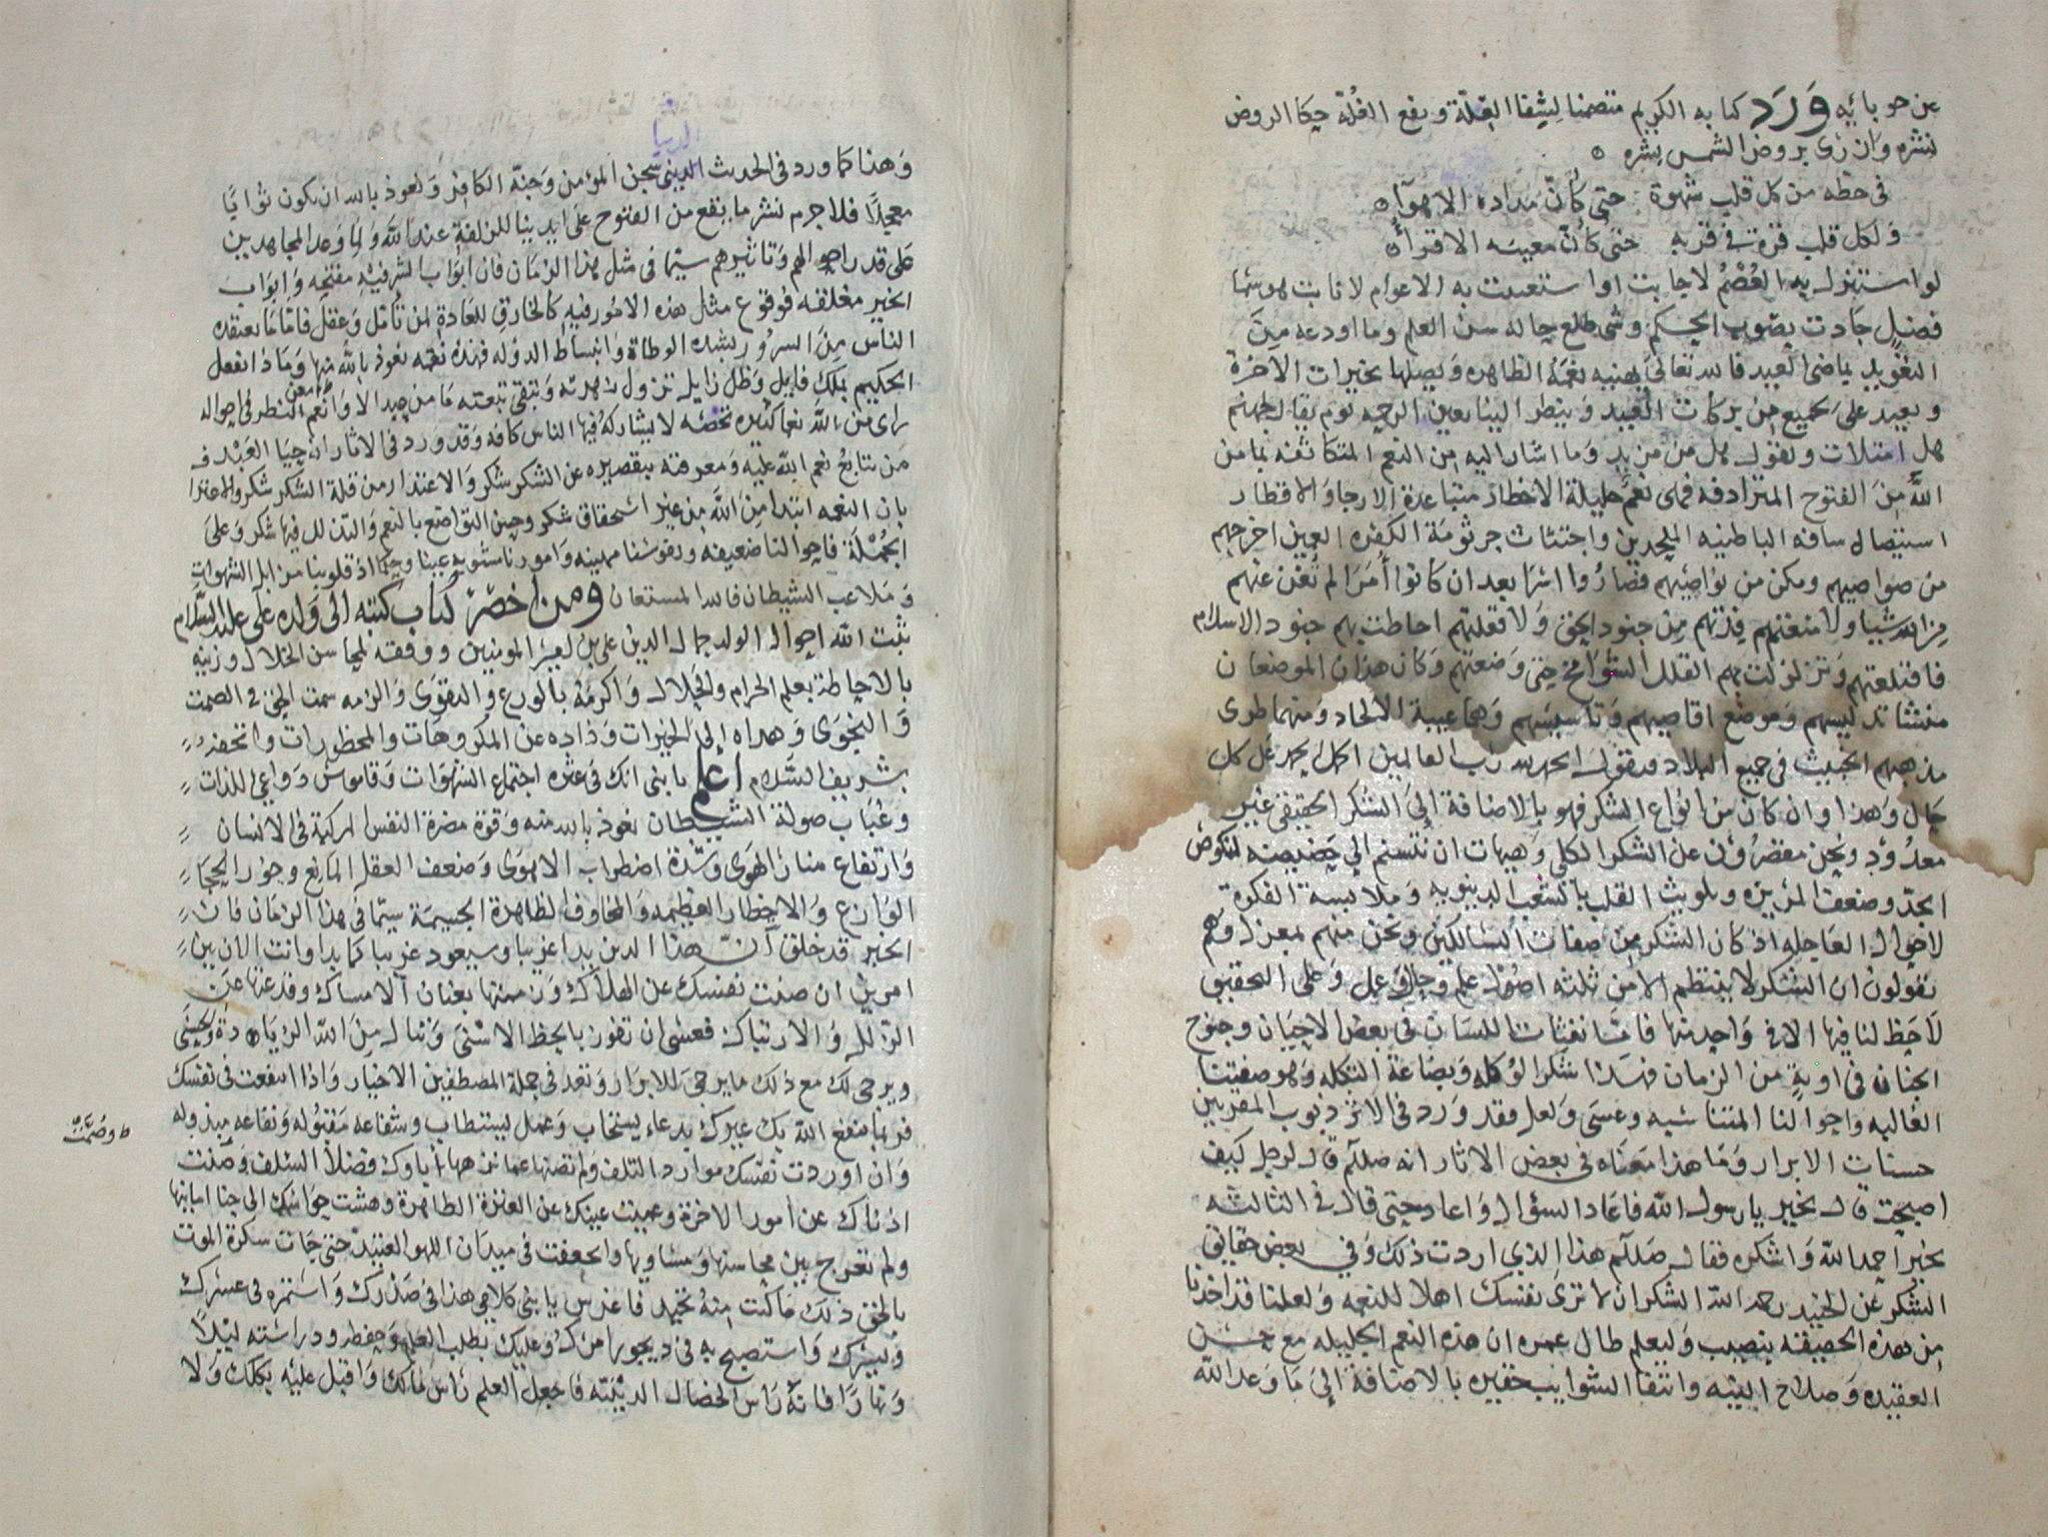 عن حوبائه وَرَدَ كتابه الكريم متضمنا لشفا العلة ونقع الغُلّة حكا الروض
نشره وازرى بروض الشمس بشره ٥
في خطه من كل قلب شهوة حتى كأنّ مداده الاهوآ ٥
ولكل قلب قرة في قربه حتى كأنّ مغيبه الاقرآ ٥
لو استنزل به العُصْمُ لاجابت او استعبدت به الاعوام لانابت
فضيل جادت بصوب الحكم وشى طلع حاله سن العلم وما اودعه من
التغويد بماضى العيد فالله تعالى يهنيه نعمهُ الظاهره ويصلها بخيرات الاخرة
ويعيد على الجميع من بركات العيد وينظر الينا بعين الرحمه يوم يقال لجهنم
هل امتلات وتقول هل من مزيد وَما اشار اليه من النعم المتكاثفه بما من
اللّه مِنَ الفتوح المترادفه فهى نعم جليلة الاخطار متباعدة الارجا والاقطار
استيصال سافه الباطنيه الملحدين واجتثاث جرثومَة الكفره العين اخرجهم
من صياصيهم ومكن من نواصيهم فصارُوا اسرا بعد ان كانوا أُمَرَا لم تغن عنهم
من الله شيا ولا منعتهم منهم مِن جنود الحق وَلا قلعتهم احاطت بهم جنود الاسلام
فاقتلعتهم وَتزلزلت بهم القلل الشوامخ حتى وَضعتهم وَكان هذان الموضعان
منشا تدليسهم وَموضع اقاصيهم وَتاسيسهم وَهما عيبة الالحاد وَمنهما طرى
مذهبهم الخبيث في جميع البلاد فنقول الحمد لله رب العالمين اكمل حمد على كل
حال وَهذا وان كان من انواع الشكر فهو بالاضافة الىَ الشكر الحقيقى غير
معدُود ونحن مقصرُون عن الشكر الكلى وَهيهات ان نتسنم الى حضيضه لنكوص
الجدّ وضعف المريره وتلويث القلب بالشغب الدنيويه وَملابسة الفكرة
لاحوال العاجله اذ كان الشكر من صفات السّالكين ونحن منهم بمعزل وهم
يقولون ان الشكر لا ينتظم الا من ثلثه اصُول علم وحال وَعمل وَعلى التحقيق
لاَ حظ لنا فيها الا في وَاحد منها فامّا نفثات اللسَان في بعض الاحيَان وجنوح
الجنان في اوية من الزمان فهَذا شكر الوُكله وَبضاعة التكله وَهو صفتنا
الغاليه واحوالنا المتناسيه وعَسَى وَلعل فقد وَرد في الاثر ذنوب المقربين
حسنات الابرار وَمَا هذا مَعنَاه في بعض الاثار انه صلّم قال لرجل كيف
اصبحت قال بخير يا رسول الله فاعَاد السؤال وَاعاد حتى قال في الثالثه
بخير احمد اللّه وَاشكره فقال صَلّم هذا الذي اردت ذلك وَفي بعض حقايق
الشكر عن الجنيد رحمه اللّه الشكر ان لا ترى نفسك اهلا للنعمه وَلعلنا قد اخذنا
مِن هذه الحقيقه بنصيب وَليعلم طال عمره ان هذه النعم الجليله مع حسن
العقيده وَصلاح النيه وانتفا الشوايب حقيره بالاضافة الىَ مَا وَعد اللّه
الدنيا
وَهذا كمَا ورد في الحديث الدينى سجن المؤمن وَجنّة الكافر وَنعوذ بالله ان يكون ثوابًا
معجلًا فلا جرم نشر ما يقع من الفتوح على ايدينا للزلفة عند اللّه وَلما وَعد المجاهدين
على قدر احوالهم وَتاثيرهم سيّما في مثل هذا الزمان فان ابوَاب الشر فيهِ مفتحه وَابوَاب
الخير مغلقه فوقوع مثل هذه الامُور فيه كالخارق للعَادة لمن تأمّل وَعقل فامّا مَا يعتقده
الناس مِنَ السرُور بشدّه الوطاة وَانبساط الدوله فهذه نقمه نعوذ باللّه منها وَمَا ذا يفعل
الحكيم بملك فايل وَظل زايل تزول زهرته وَتبقى تبعته مَا من عبد الا وَانعم امعن النظر في احواله
راى مِن اللّه نعما كثيره تخصّه لا يشاركهُ فيها الناس كافه وَقد ورد في الاثار ان حيَا العَبْد
من تتابعُ نعم اللّه عليه وَمعرفته بتقصيره عن الشكر شكر وَالاعتذار من قلة الشكر شكر والاعتراف
بان النعمه ابتدا مِنَ اللّه مِن غير استحقاق شكر وحسن التواضع بالنعم وَالتذلل فيها شكر وَعلى
الجُمْلَة فاحوالنا ضعيفه ونفوسنا مهينه وَامورنا مشوبه
وَملاعب الشيطان فالله المستعان ومن اخصر كتاب كتبه الى وَلده على عليه السَّلام
ثبّت اللّه احوال الولد جمال الدين على بن امير المومنين ووفقه لمحاسن الخلال وزينه
بالاحاطة بعلم الحرام والحَلال وَاكرمَهُ بالورع والتقوَى وَالزمه سمت الحق في الصمت
وَالنجوَى وَهداه إلى الخيرات وَذادِه عن المكروهَات والمحظورات واتحفهُ
بشريف السَّلام اعلم يا بنى انك في غمره اجتماع الشهَوَات وَقاموسُ دَواعِي اللذات
وَعُبَاب صولة الشيطان نعوذ بالله منه وَقوة مضرة النفس المركبَة في الانسان
وَارتفاع منار الهَوى وشدّة اضطراب الاهوَى وَضعف العقل المانِع وخوَر الحجَا
الوَازع وَالاخطار العظيمه وَالمخاوف الظاهرة الجسيمَة سيّما في هذا الزمَان فان
الخير قد خلق آن هذا الدين بدا غريبا وسيعود غريبا كما بدا وانت الان بين
امرين ان صنت نفسك عن الهلاك وَزممتها بعنان الامساك وقدعتها عَن
الزلل وَالارتباك فعسَى ان تفوز بالحظ الاسْنَى وَتنال مِنَ اللّه الزيَادة والحسنَى
ويرجى لك مع ذلك ما يرجىَ للابرَار وَتعد في جملة المصطفين الاخيار وَاذا انتفعت في نفسك
فربما نفع اللّه بك غيرك بدعاء يستجاب وَعمل يستطاب وشفاعه مَقبُوله وَنفاعه مبذوله
وَان اوردت نفسك موارد التلف وَلم تصنها عمّا نزهها اباوك فضلاً السّلف وَصمّت
ط وصُمَّتْ
اذناك عن امور الاخرة وَعميت عينك عن العبرة الظاهرة وَهشت حوَاسّك الى
ولم تعرج بين محاسنها وَمساويها وانجعفت في ميدَان اللهو العنيد حتى جَات سكرة الموت
بالحق ذلك مَا كنت مِنهُ تحيد فاغرس يا بنى كلامى هذا في صَدْرك وَاستمره في عسرك
وَيسرك وَاستصبح به في ديجور امرك وعليك بطلب العلم وحفظه ودراسته ليْلاً
وَنهارًا فانّهُ رَاس الخصال الدينيّه فاجعل العلم رَاس مَالك وَاقبل عليْه بكلك وَلا